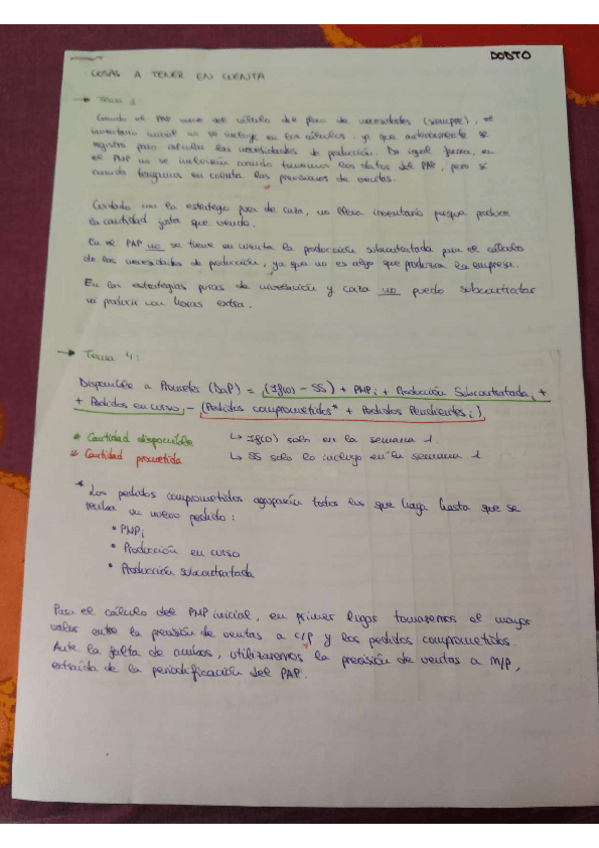 DODTO
COSAS A TENER EN CUENTA
→ Tema 3:
Cuando el PAP viene del cálculo del plan de necesidades (siempre), el
inventario inicial no se incluye en los cálculos, ya que anteriormente se
registró para calcular las necesidades de producción. De igual forma, en
el PMP no se incluirán cuando tenemos los datos del PAP, pero sí
cuando tengamos en cuenta las previsiones de ventas.
Cuidado con la estrategia pura de caza, no lleva inventario porque produce
la cantidad justa que vendo.
En el PAP no se tiene en cuenta la producción subcontratada para el cálculo
de las necesidades de producción, ya que no es algo que produzca la empresa.
En las estrategias puras de nivelación y caza no puedo subcontratar
ni producir con horas extra.
→ Tema 4:
Disponible a Prometer (DaP) = (If(0) - SS) + PMPi + Producción Subcontratadai +
+ Pedidos en curso - (Pedidos comprometidos* + Pedidos Pendientesi)
* Cantidad disponible ↳ If(0) solo en la semana 1.
* Cantidad prometida ↳ SS solo lo incluyo en la semana 1
* Los pedidos comprometidos agruparán todos los que haya hasta que se
reciba un nuevo pedido:
• PMPi
• Producción en curso
• Producción subcontratada
Para el cálculo del PMP inicial, en primer lugar tomaremos el mayor
valor entre la previsión de ventas a c/p y los pedidos comprometidos.
Ante la falta de ambos, utilizaremos la previsión de ventas a M/P,
extraída de la periodificación del PAP.